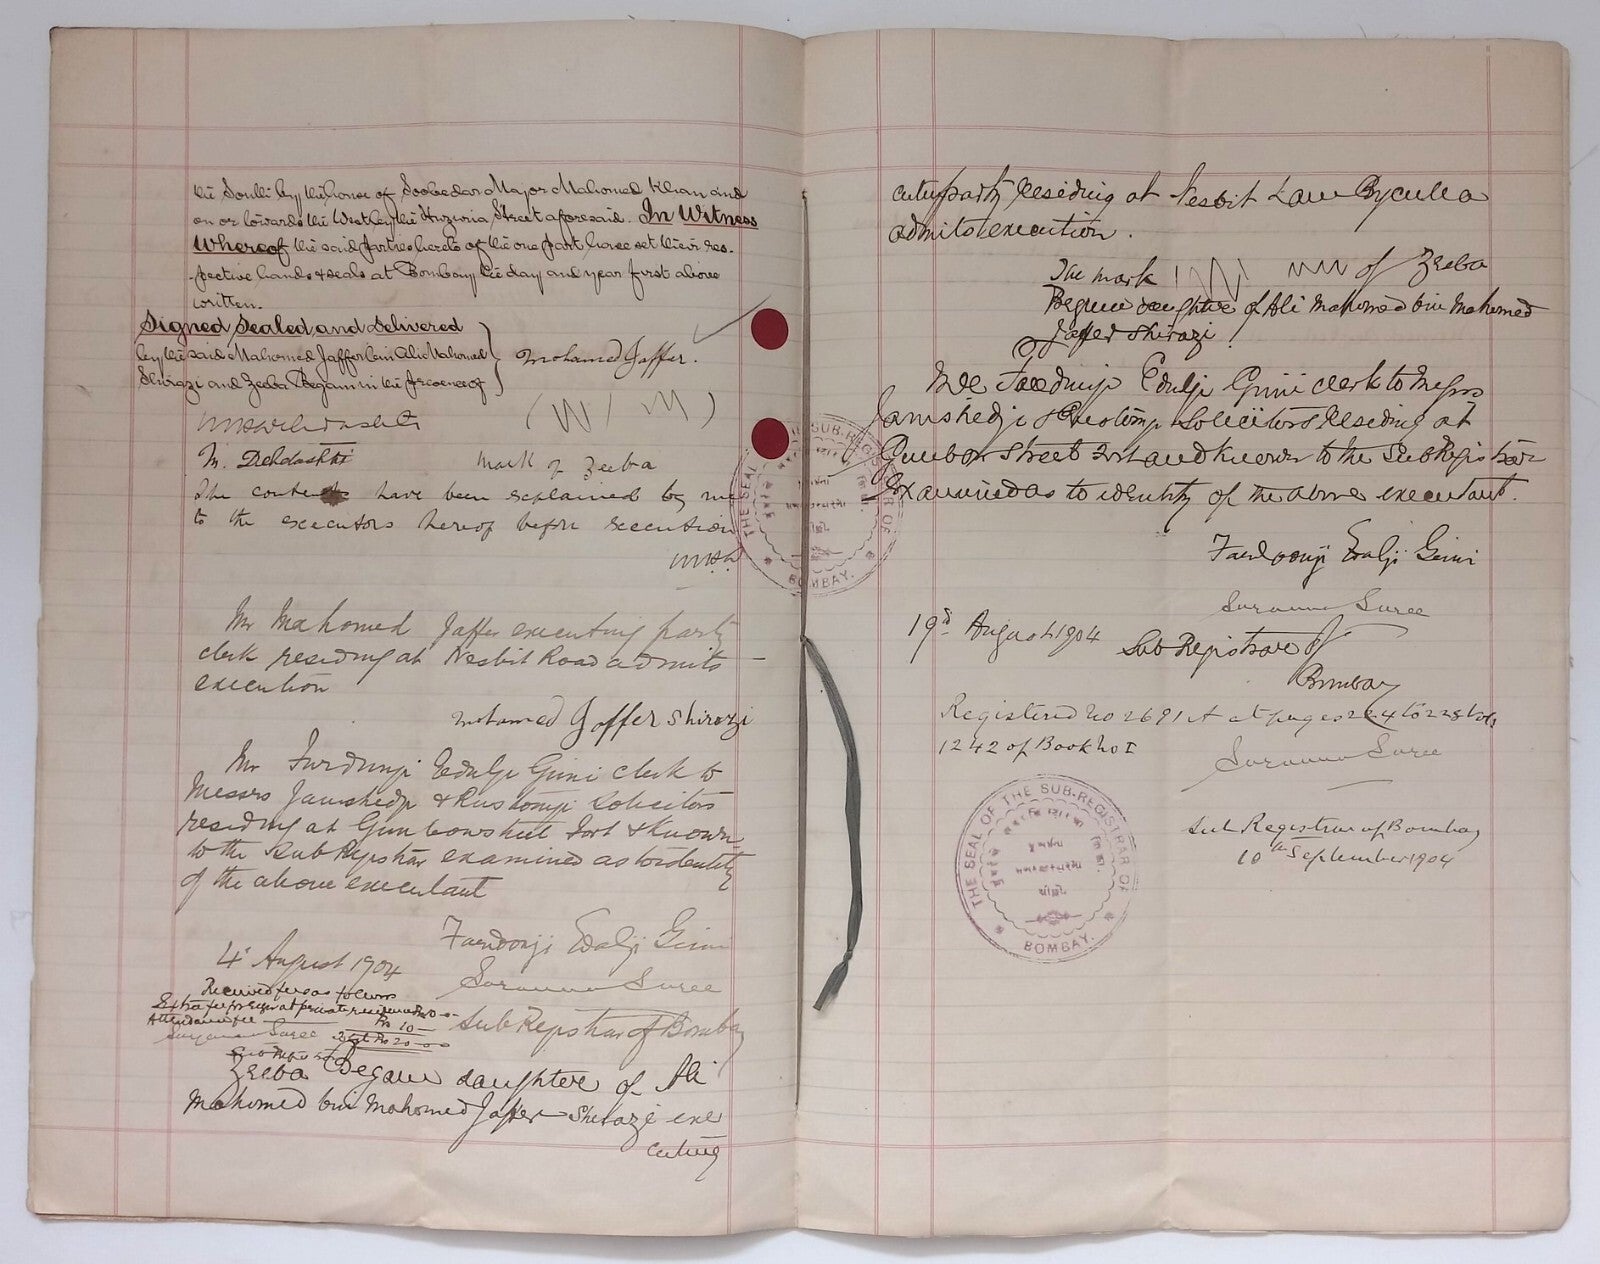 the South by the house of Soobedar Major Mahomed Khan and
on or towards the West by the Huzuria Street aforesaid. In Witness
Whereof the said parties hereto of the one part have set their res-
-pective hands & seals at Bombay the day and year first above
written.
Signed Sealed and delivered
by the said Mahomed Jaffer bin Ali Mahomed
Shirazi and Zeeba Begam in the presence of
Mohamed Jaffer.
M. Dehdashti
Mark of Zeeba
The contents have been explained by me
to the executors hereof before execution
Mr Mahomed Jaffer executing party
clerk residing at Nesbit Road admits
execution
Mohamed Jaffer Shirazi
Mr Furdunji Edulji Gimi clerk to
Messrs Jamshedji & Rustomji Solicitors
residing at Gunbow street Fort & known
to the Sub Registrar examined as to identity
of the above executant
Fardoonji Edalji Gimi
4th August 1904
Received fees as follows
Extra fee for regn at private residence Rs 10-0-
Attendance fee Rs 10-
Total Rs 20-0-0
Sub Registrar of Bombay
Zeeba Begam daughter of Ali
Mahomed bin Mahomed Jaffer Shirazi exe
cuting
cuting party residing at Nesbit Lane Byculla
admits execution.
The mark of Zeeba
Begum daughter of Ali Mahomed bin Mahomed
Jaffer Shirazi
Mr Furdunji Edulji Gimi clerk to Messrs
Jamshedji & Rustomji Solicitors residing at
Gunbow Street Fort and known to the Sub Registrar
Examined as to identity of the above executant.
Fardoonji Edalji Gimi
19th August 1904
Sub Registrar of
Bombay
Registered No 2691 A at pages 224 to 228 Vol
1242 of Book No I
Sub Registrar of Bombay
10th September 1904
THE SEAL OF THE SUB-REGISTRAR OF
BOMBAY.
THE SEAL OF THE SUB-REGISTRAR OF
BOMBAY.